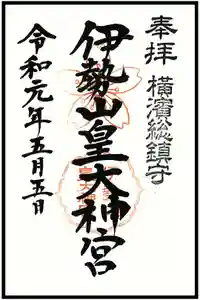 奉拝
横濱総鎮守
伊勢山皇大神宮
令和元年五月五日